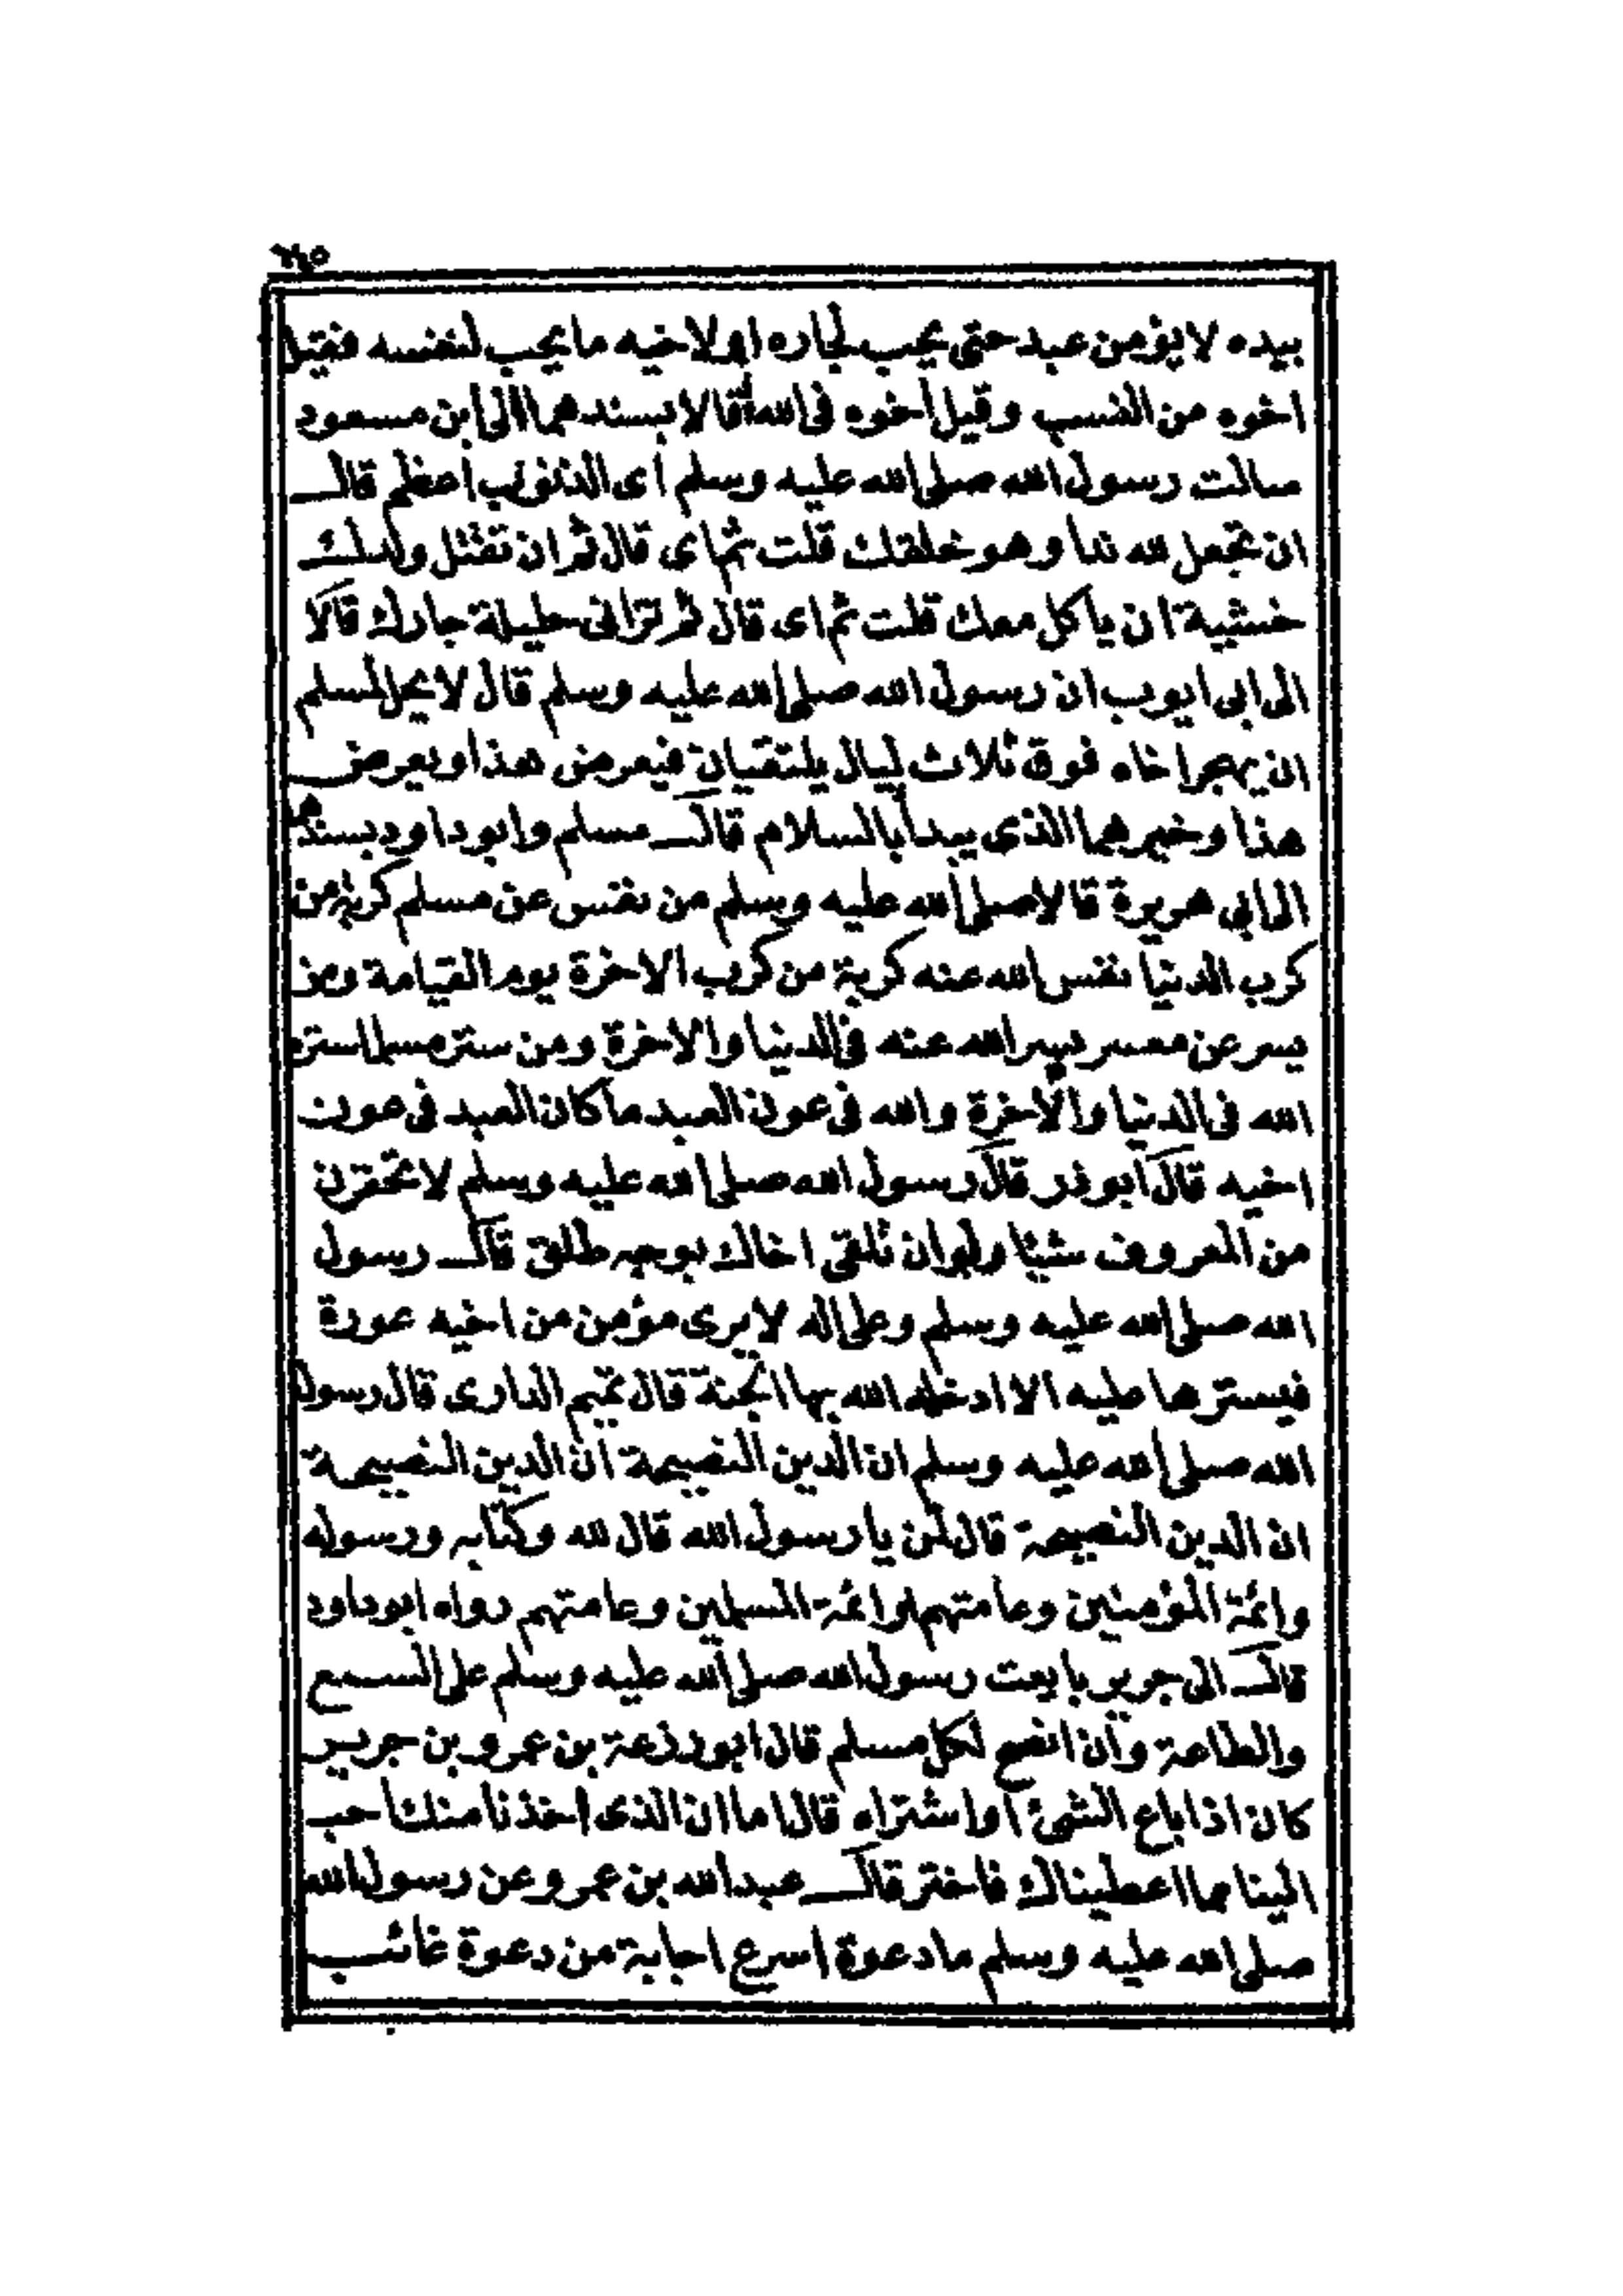 بيده لا يؤمن عبد حتى يحب لجاره او لاخيه ما يحب لنفسه فقيل
اخوه من النسب وقيل اخوه فى الله قالا بسندهما الى ابن مسعود
سالت رسول الله صلى الله عليه وسلم اى الذنوب اعظم قال
ان تجعل لله ندا وهو خلقك قلت ثم اى قال ثم ان تقتل ولدك
خشية ان ياكل معك قلت ثم اى قال ثم تزانى حليلة جارك قالا
الى ابى ايوب ان رسول الله صلى الله عليه وسلم قال لا يحل لمسلم
ان يهجر اخاه فوق ثلاث ليال يلتقيان فيعرض هذا ويعرض
هذا وخيرهما الذى يبدأ بالسلام قال مسلم وابو داود بسندهما
الى ابى هريرة قالا صلى الله عليه وسلم من نفس عن مسلم كربة من
كرب الدنيا نفس الله عنه كربة من كرب الاخرة يوم القيامة ومن
يسر عن معسر يسر الله عنه فى الدنيا والاخرة ومن ستر مسلما ستره
الله فى الدنيا والاخرة والله فى عون العبد ما كان العبد فى عون
اخيه قال ابو ذر قال رسول الله صلى الله عليه وسلم لا تحقرن
من المعروف شيئا ولو ان تلقى اخاك بوجه طلق قال رسول
الله صلى الله عليه وسلم وعلى اله لا يرى مؤمن من اخيه عورة
فيسترها عليه الا ادخله الله بها الجنة قال تميم الدارى قال رسول
الله صلى الله عليه وسلم ان الدين النصيحة ان الدين النصيحة
ان الدين النصيحة قال لمن يا رسول الله قال لله وكتابه ورسوله
وائمة المؤمنين وعامتهم او ائمة المسلمين وعامتهم رواه ابو داود
قال الى جرير بايعت رسول الله صلى الله عليه وسلم على السمع
والطاعة وان انصح لكل مسلم قال ابو زرعة بن عمرو بن جرير
كان اذا باع الشئ او اشتراه قال اما ان الذى اخذنا منك احب
الينا مما اعطيناك فاختر قال عبد الله بن عمرو عن رسول الله
صلى الله عليه وسلم ما دعوة اسرع اجابة من دعوة غائب